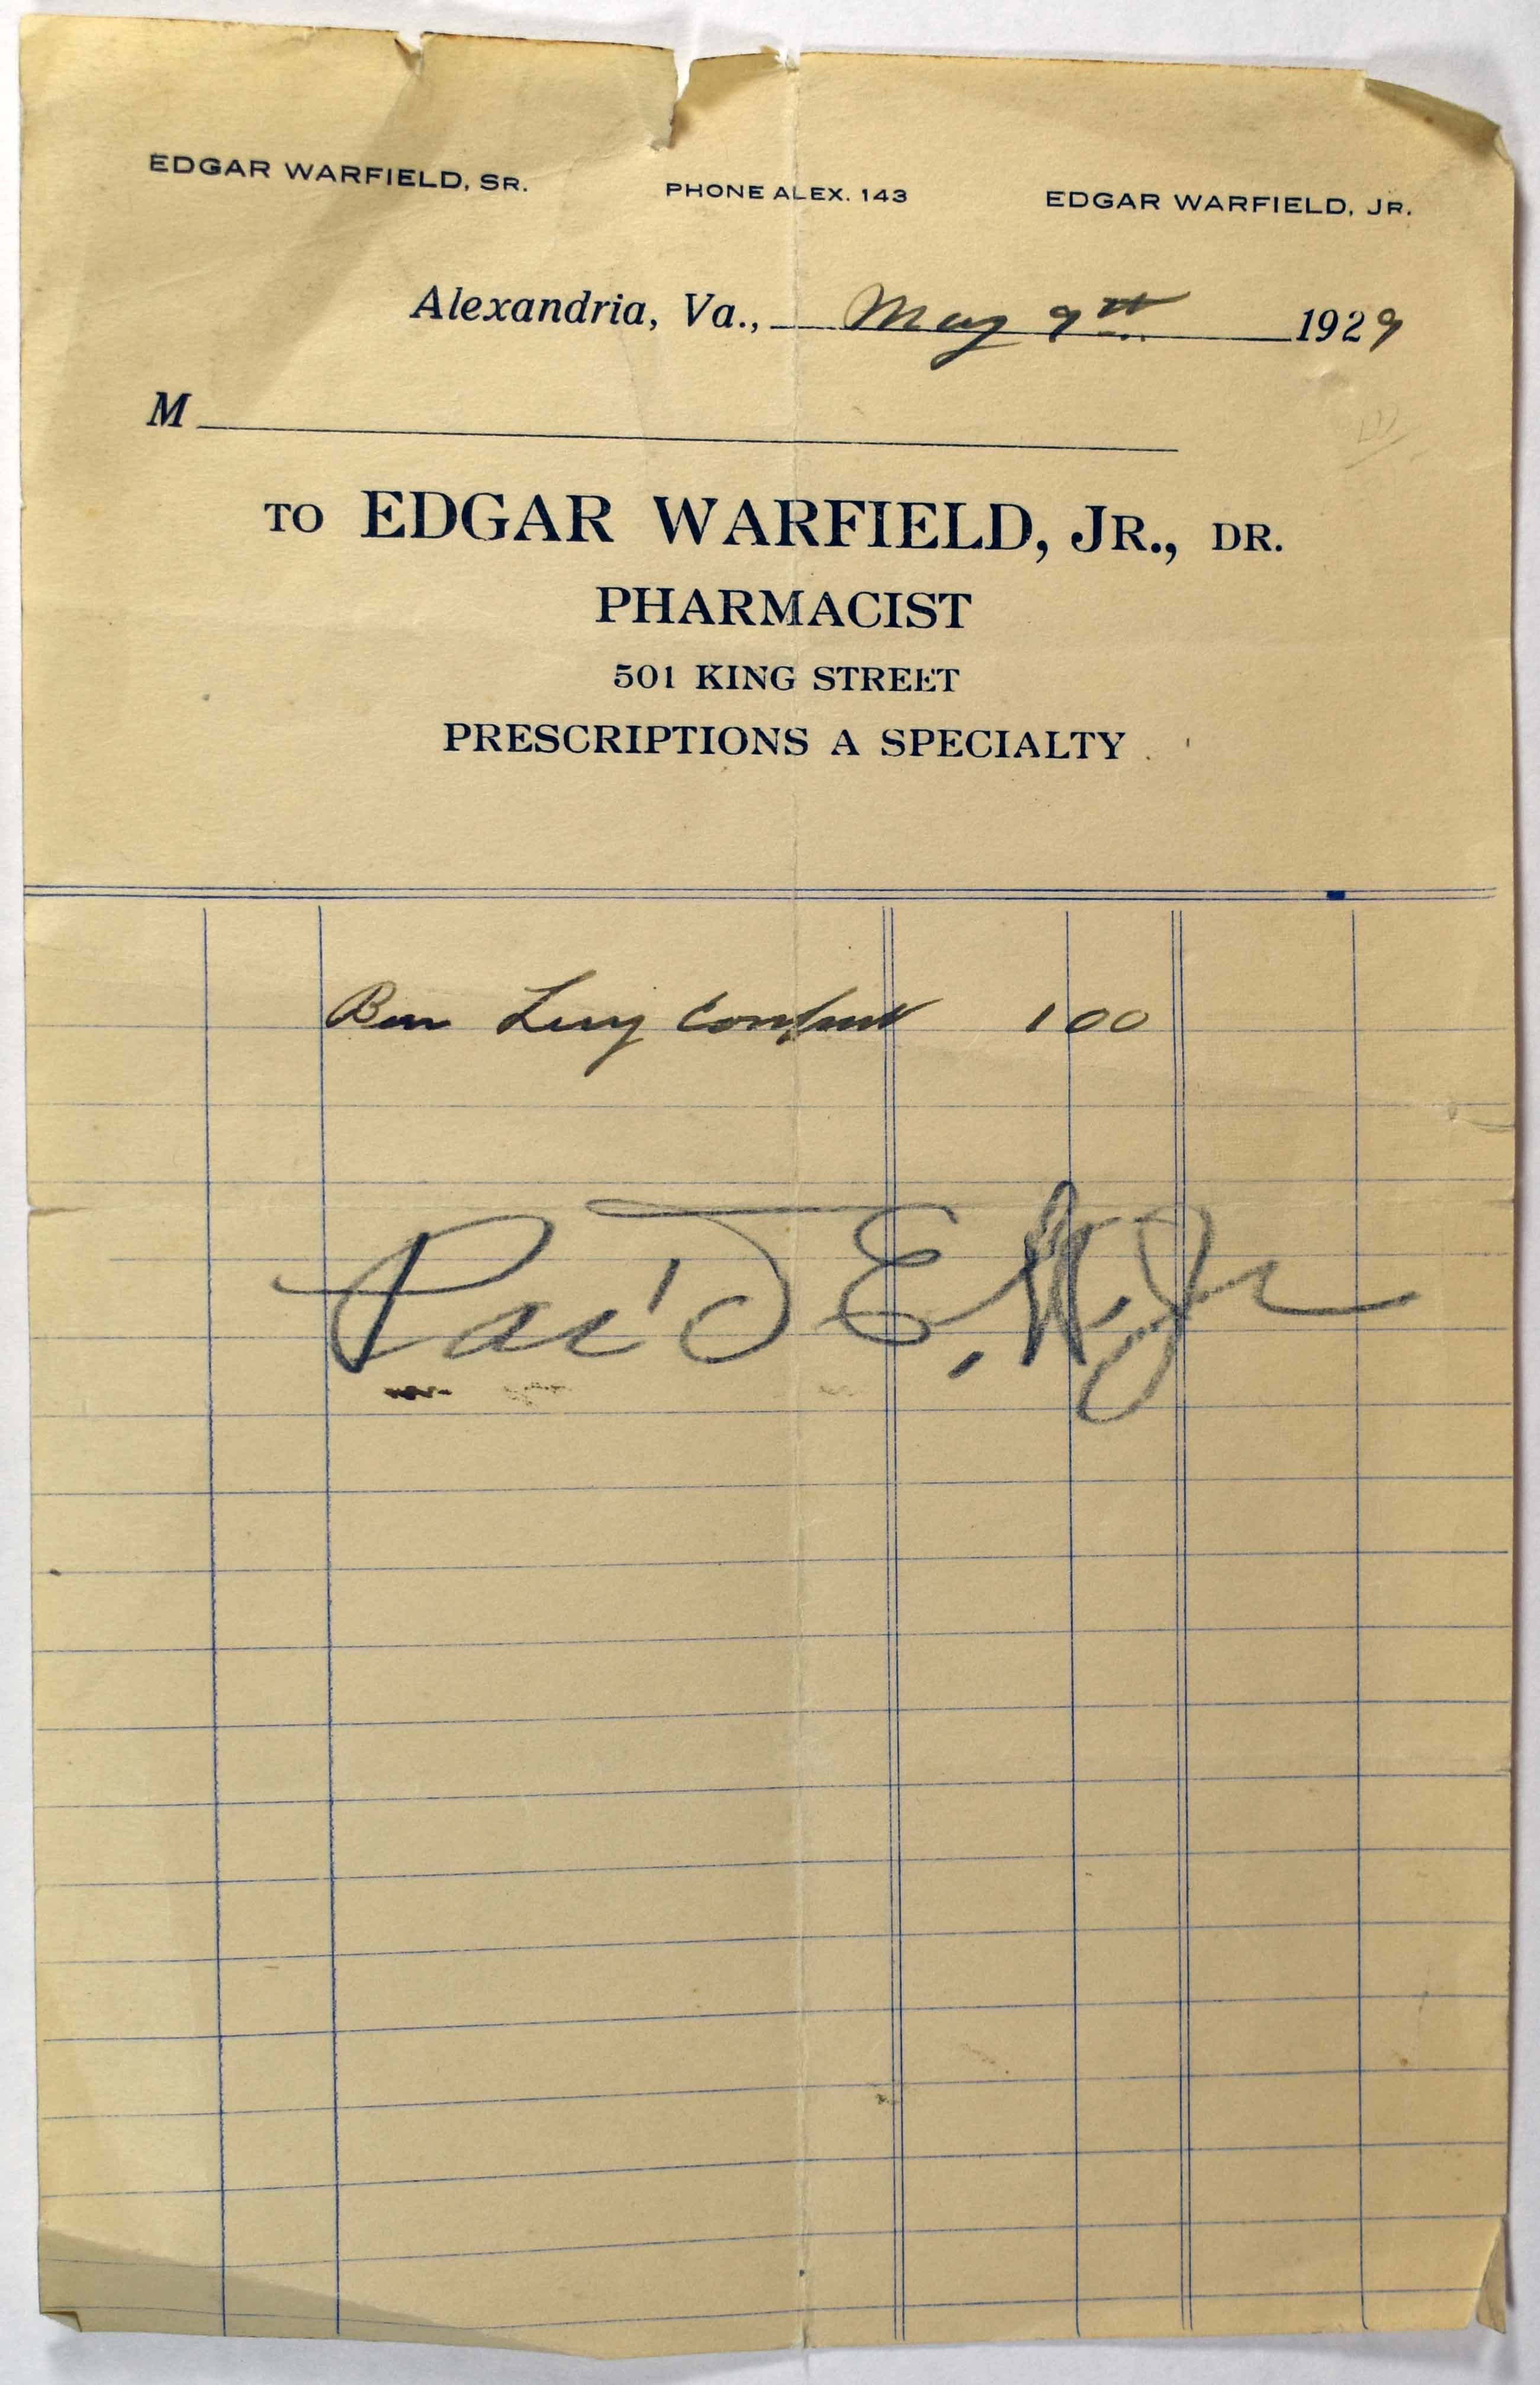 EDGAR WARFIELD, SR. PHONE ALEX. 143 EDGAR WARFIELD, JR.
Alexandria, Va., May 9th 1929
M
TO EDGAR WARFIELD, JR., DR.
PHARMACIST
501 KING STREET
PRESCRIPTIONS A SPECIALTY
Ben Levy Compact 1 00
Paid E. W. Jr